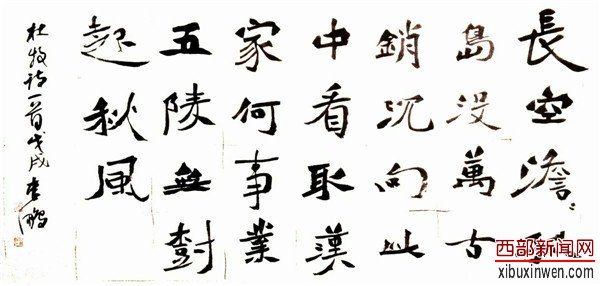 長空澹〻
島沒萬古
銷沉向此
中看取漢
家何事業
五陵無樹
起秋風
杜牧詩一首戊戌李鵬
西部新闻网
xibuxinwen.com